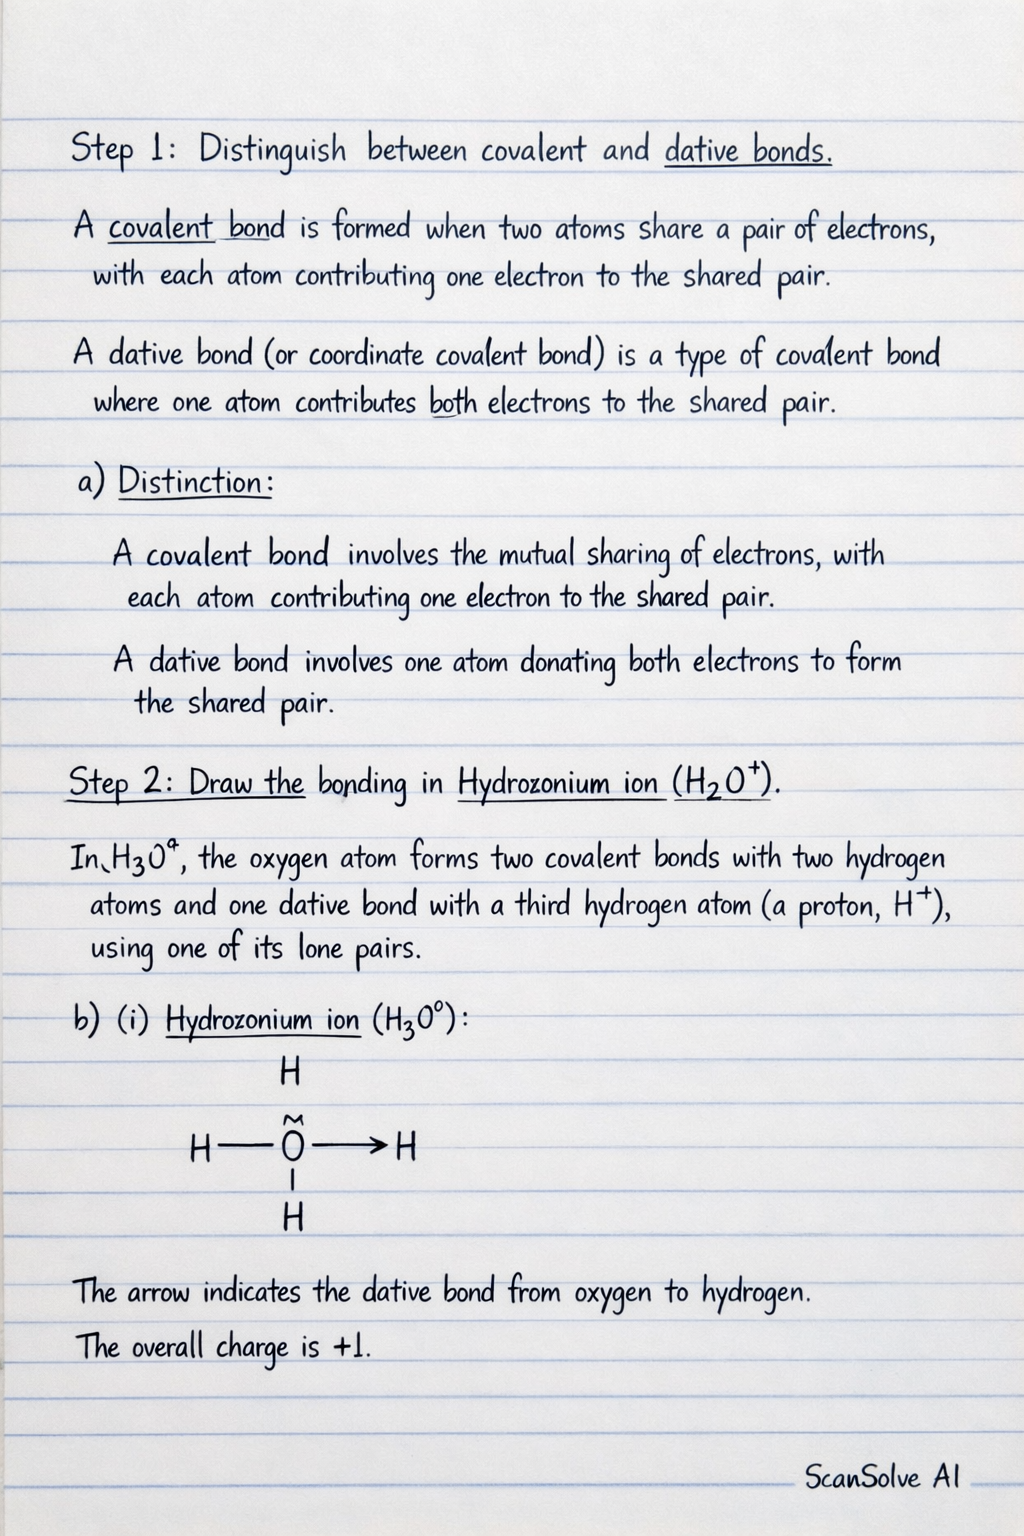 Step 1: Distinguish between covalent and dative bonds.
A covalent bond is formed when two atoms share a pair of electrons,
with each atom contributing one electron to the shared pair.
A dative bond (or coordinate covalent bond) is a type of covalent bond
where one atom contributes both electrons to the shared pair.
a) Distinction:
A covalent bond involves the mutual sharing of electrons, with
each atom contributing one electron to the shared pair.
A dative bond involves one atom donating both electrons to form
the shared pair.
Step 2: Draw the bonding in Hydrozonium ion (H₂O⁺).
In H₃O^q, the oxygen atom forms two covalent bonds with two hydrogen
atoms and one dative bond with a third hydrogen atom (a proton, H⁺),
using one of its lone pairs.
b) (i) Hydrozonium ion (H₃O⁰):
H
H — O → H
H
The arrow indicates the dative bond from oxygen to hydrogen.
The overall charge is +1.
ScanSolve AI